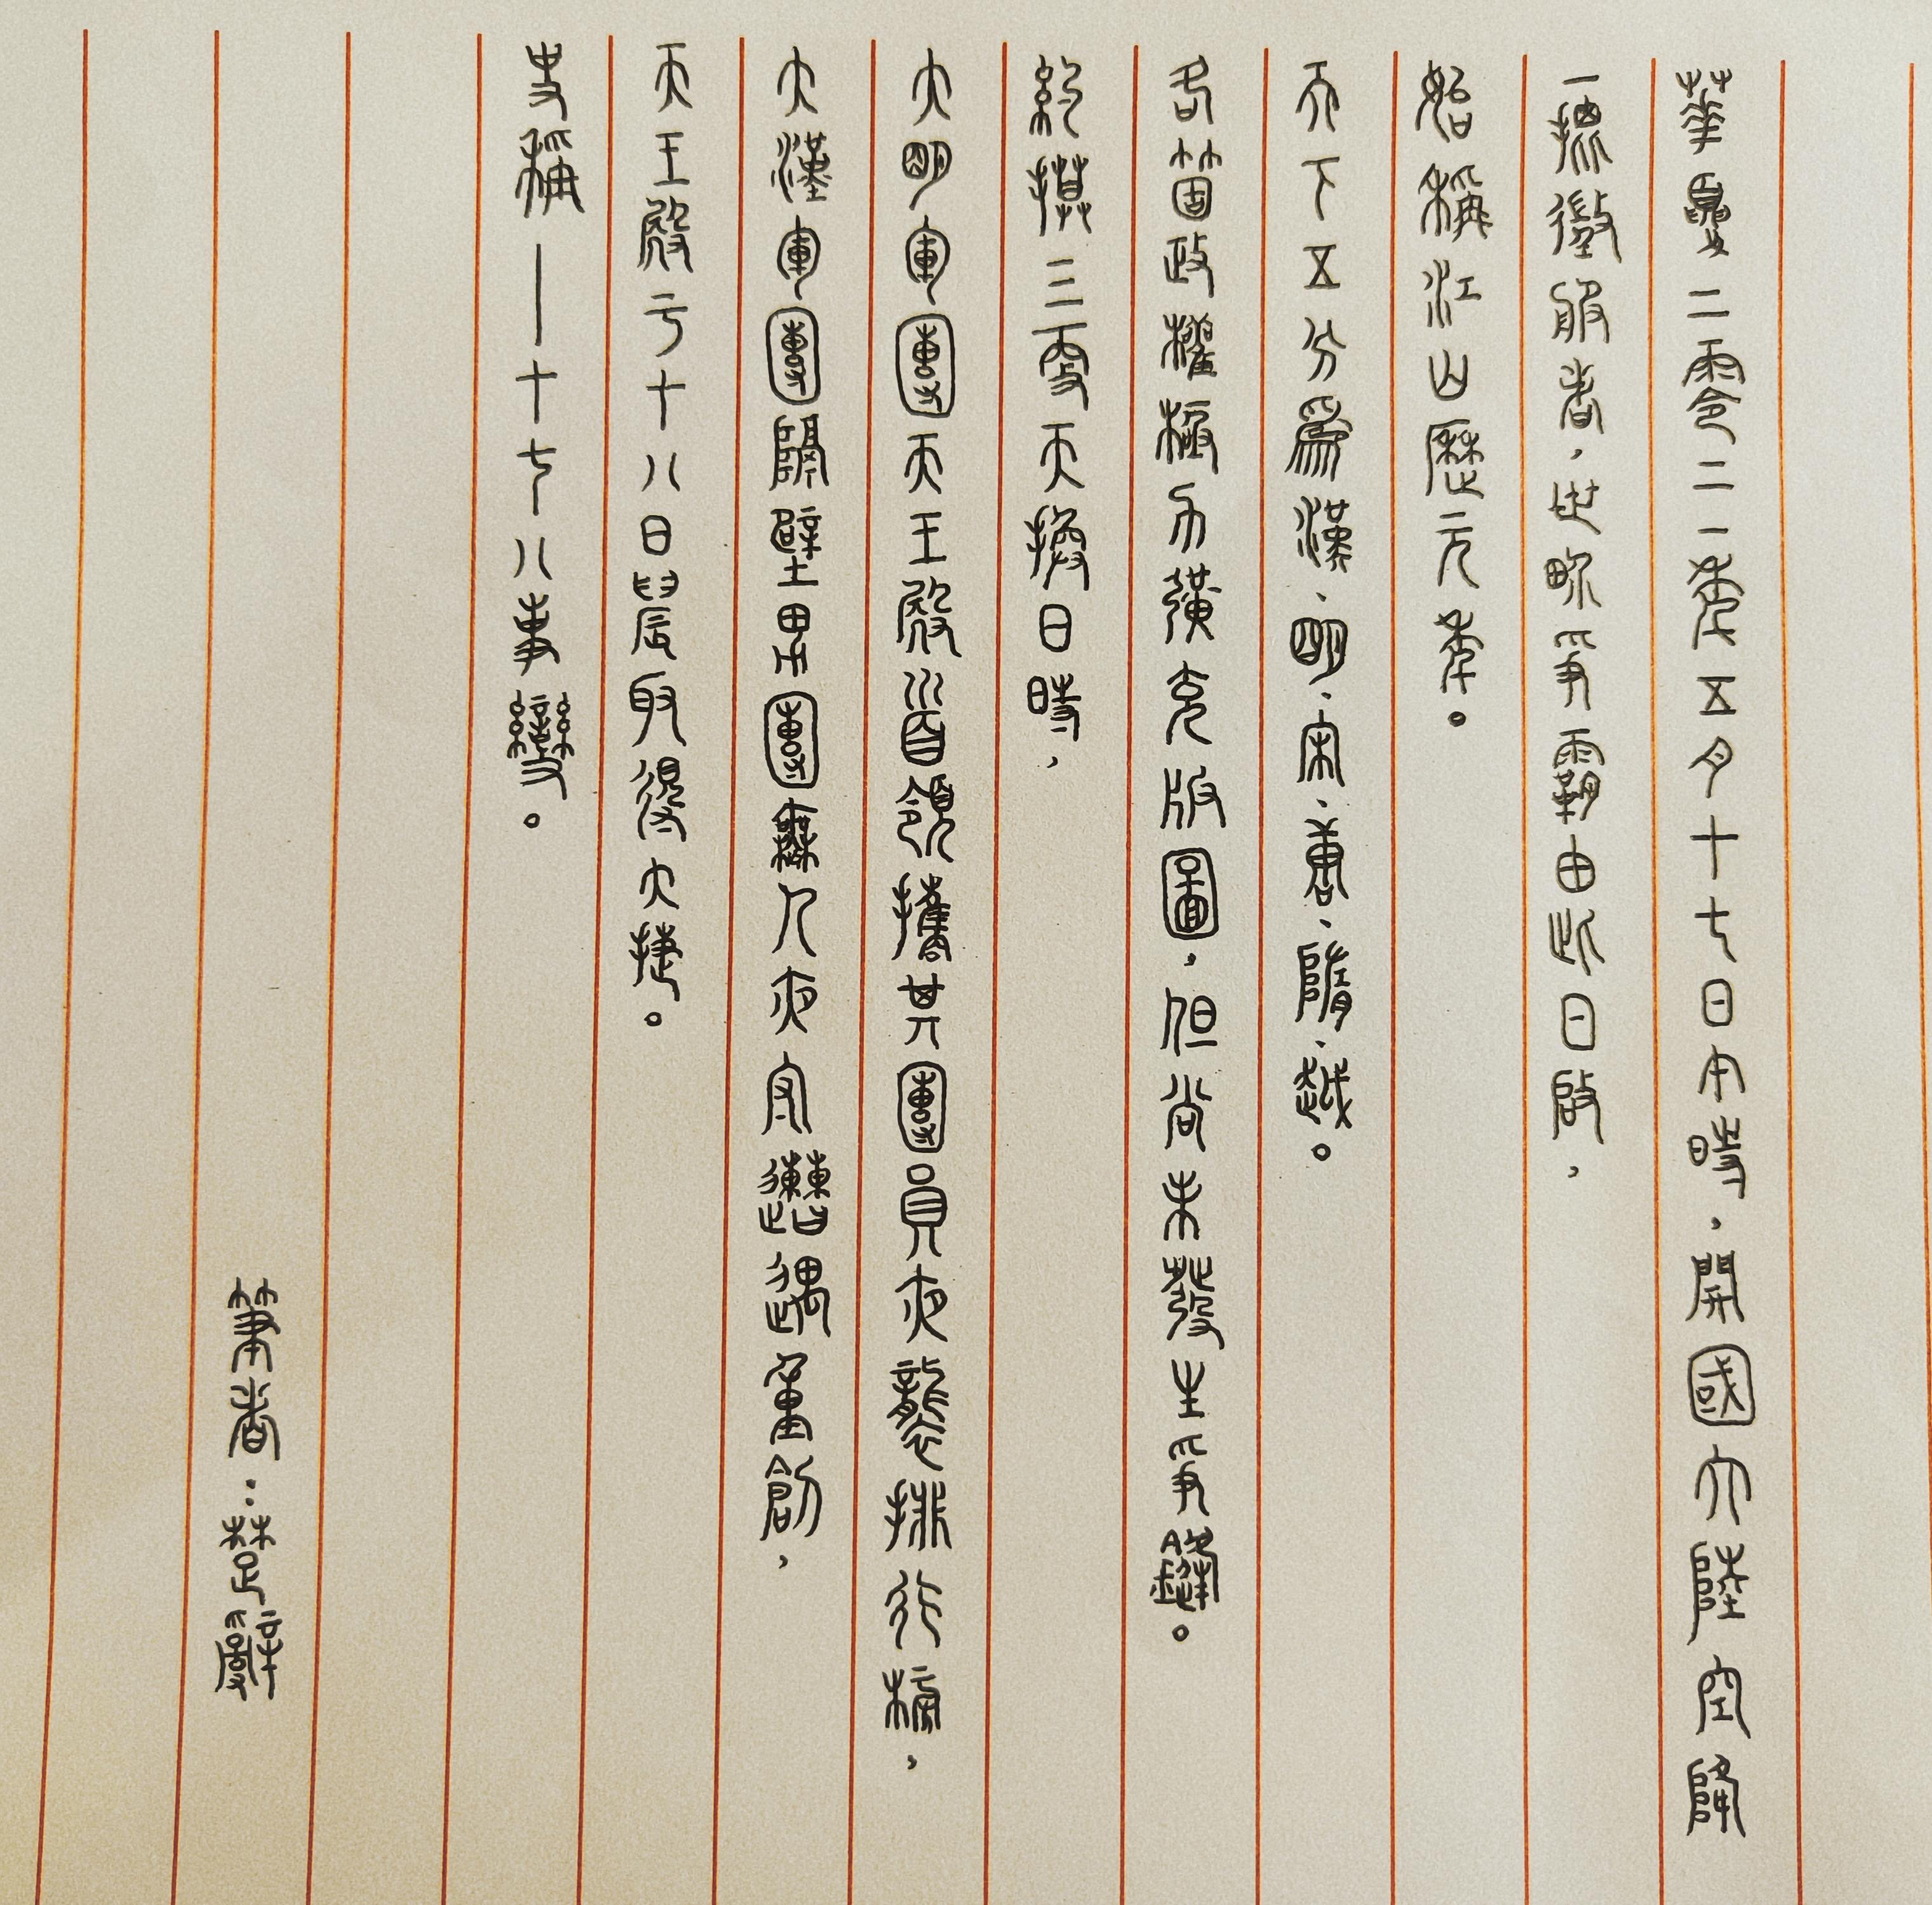 華夏二零二一年五月十七日午時，開國大陸空降
一預徵服者，世界爭霸由此日啟，
始稱江山歷元年。
天下五分為漢、明、宋、唐、隋、越。
各個政權極力擴充版圖，但尚未發生爭鋒。
約摸三更天換日時，
大明軍團天王殿首領攜其團員夜襲排行榜，
大漢軍團隔壁男團無人夜守慘遇重創，
天王殿于十八日晨取得大捷。
史稱——十七八事變。
筆者：楚嬖